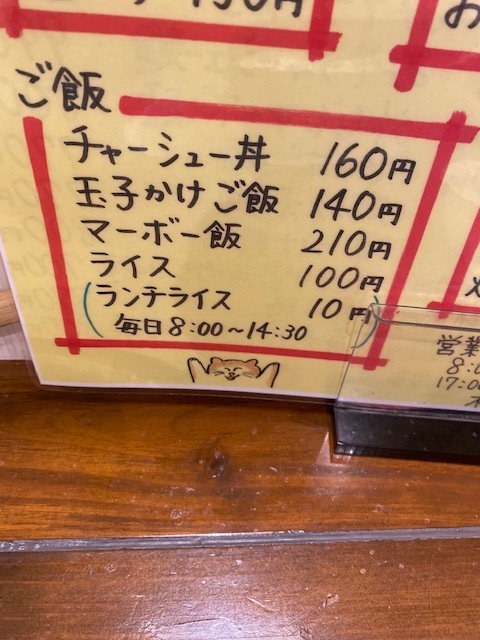 130円
お
ご飯
チャーシュー丼 160円
玉子かけご飯 140円
マーボー飯 210円
ライス 100円
(ランチライス 10円)
毎日8:00～14:30
営業
8:0
17:00